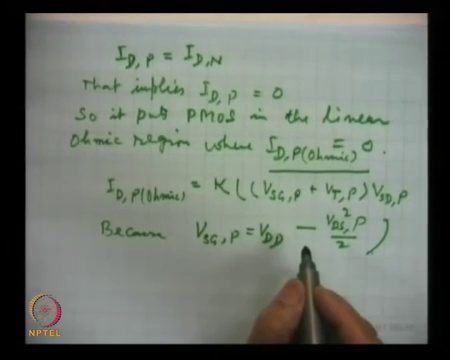 I_D,P = I_D,N
That implies I_D,P = 0
So it puts PMOS in the linear
Ohmic region where I_D,P(Ohmic) = 0.
I_D,P(Ohmic) = K((V_SG,P + V_T,P)V_SD,P
- V_DS,P²/2)
Because V_SG,P = V_DD
NPTEL